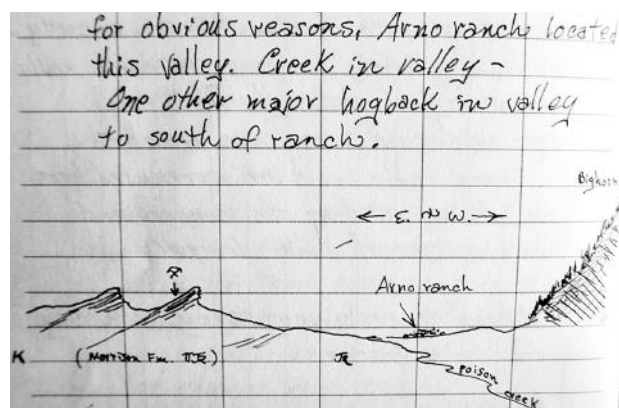 for obvious reasons, Arno ranch located
this valley. Creek in valley -
One other major hogback in valley
to south of ranch.
Bighorn
← E. ~ W. →
Arno ranch
K (Morrison Fm.
poison
creek